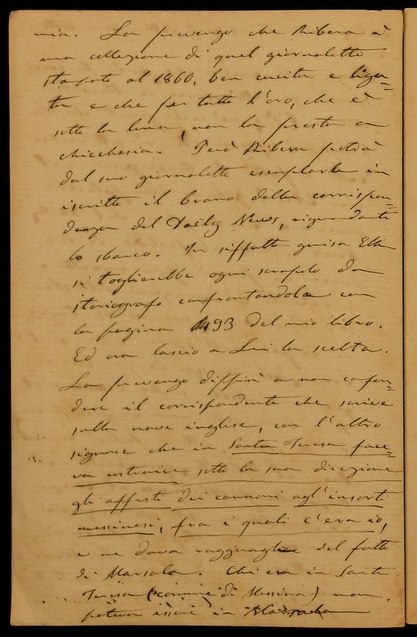 mia. La prevengo che Ribera à
una collezione di quel giornaletto
stampato al 1860, ben cucita e liga-
ta e che per tutto l'oro, che è
sotto la luna, non la presta a
chicchesia. Però Ribera potrà
dal suo giornaletto esemplarle in
iscritto il brano della corrispon-
denza del Daily News, riguardante
lo sbarco. In siffatta guisa Ella
si toglierebbe ogni scrupolo da
storiografo confrontandola con
la pagina 493 del mio libro.
Ed ora lascio a Lei la scelta.
La prevengo a non confon-
dere il corrispondente che scrive
sulla nave inglese, con l'altro
signore che in Santa Teresa face-
va costruire sotto la sua direzione
gli affusti dei cannoni agl'insorti
messinesi, fra i quali c'era io,
e ne dava ragguaglio del fatto
di Marsala. Chi era in Santa
Teresa (comune di Messina) non
poteva essere in